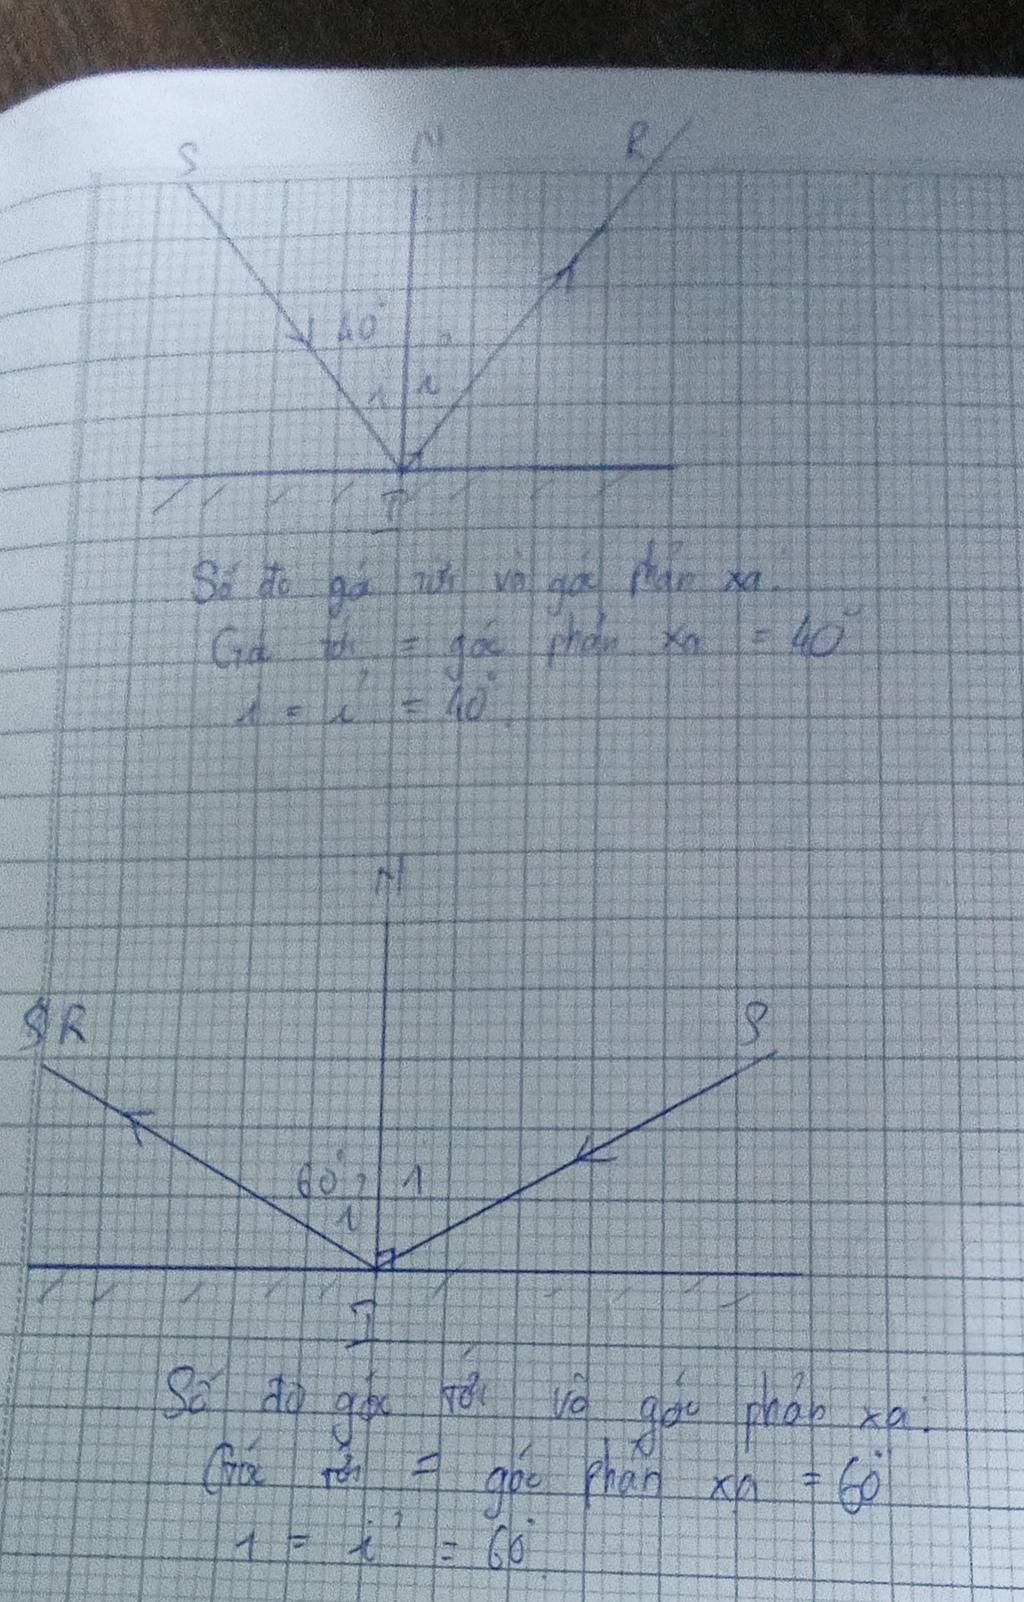 S N R
40°
i i'
I
Số đo góc tới và góc phản xạ:
Góc tới = góc phản xạ = 40°
i = i' = 40°
N
R S
60° i
i'
I
Số đo góc tới và góc phản xạ:
Góc tới = góc phản xạ = 60°
i = i' = 60°